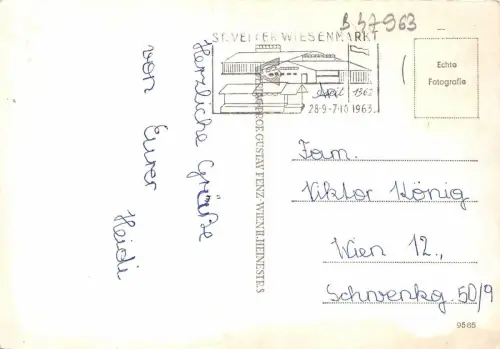 B 47963
ST. VEITER WIESENMARKT
seit 1362
28·9-7·10 1963
Echte
Fotografie
Herzliche Grüße
von Eurer
Heidi
GUSTAV FENZ·WIEN II, HEINESTR. 5
Fam.
Viktor König
Wien 12.,
Schwenkg. 50/9
9585